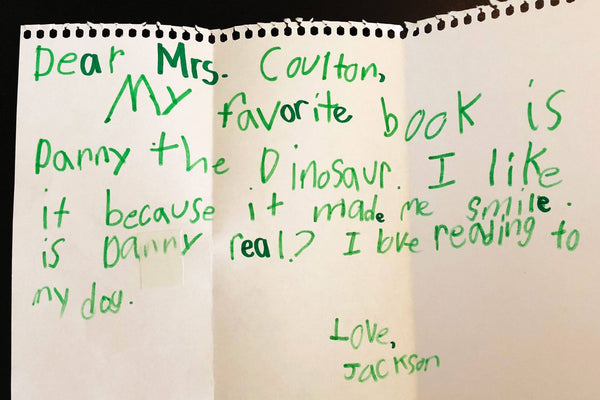 Dear Mrs. Coulton,
My favorite book is
Danny the Dinosaur. I like
it because it made me smile.
is Danny real? I love reading to
my dog.
Love,
Jackson